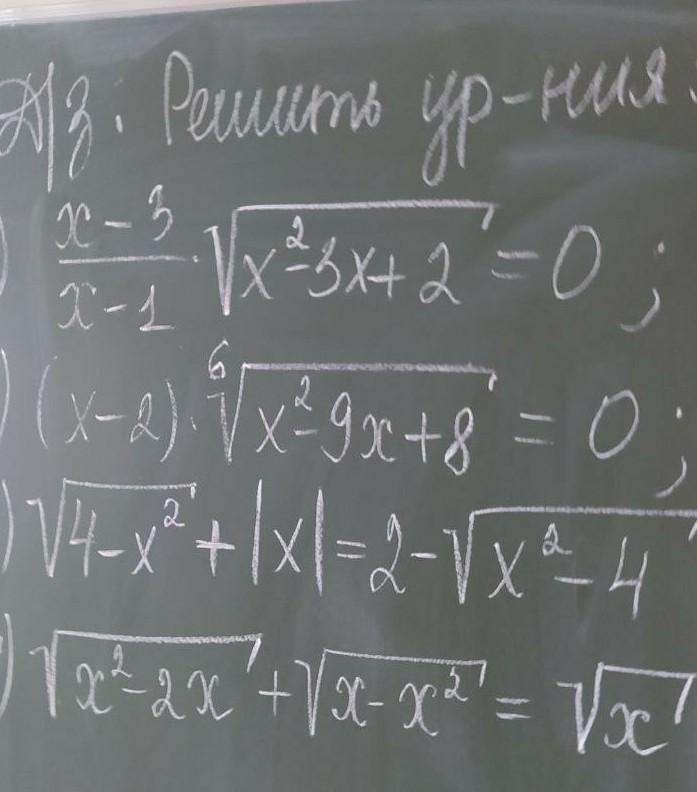 Д/З. Решить ур-ния:
) x-3/x-1 · √(x²-3x+2) = 0;
) (x-2) · ⁶√(x²-9x+8) = 0;
) √(4-x²) + |x| = 2-√(x²-4)
) √(x²-2x) + √(x-x²) = √x